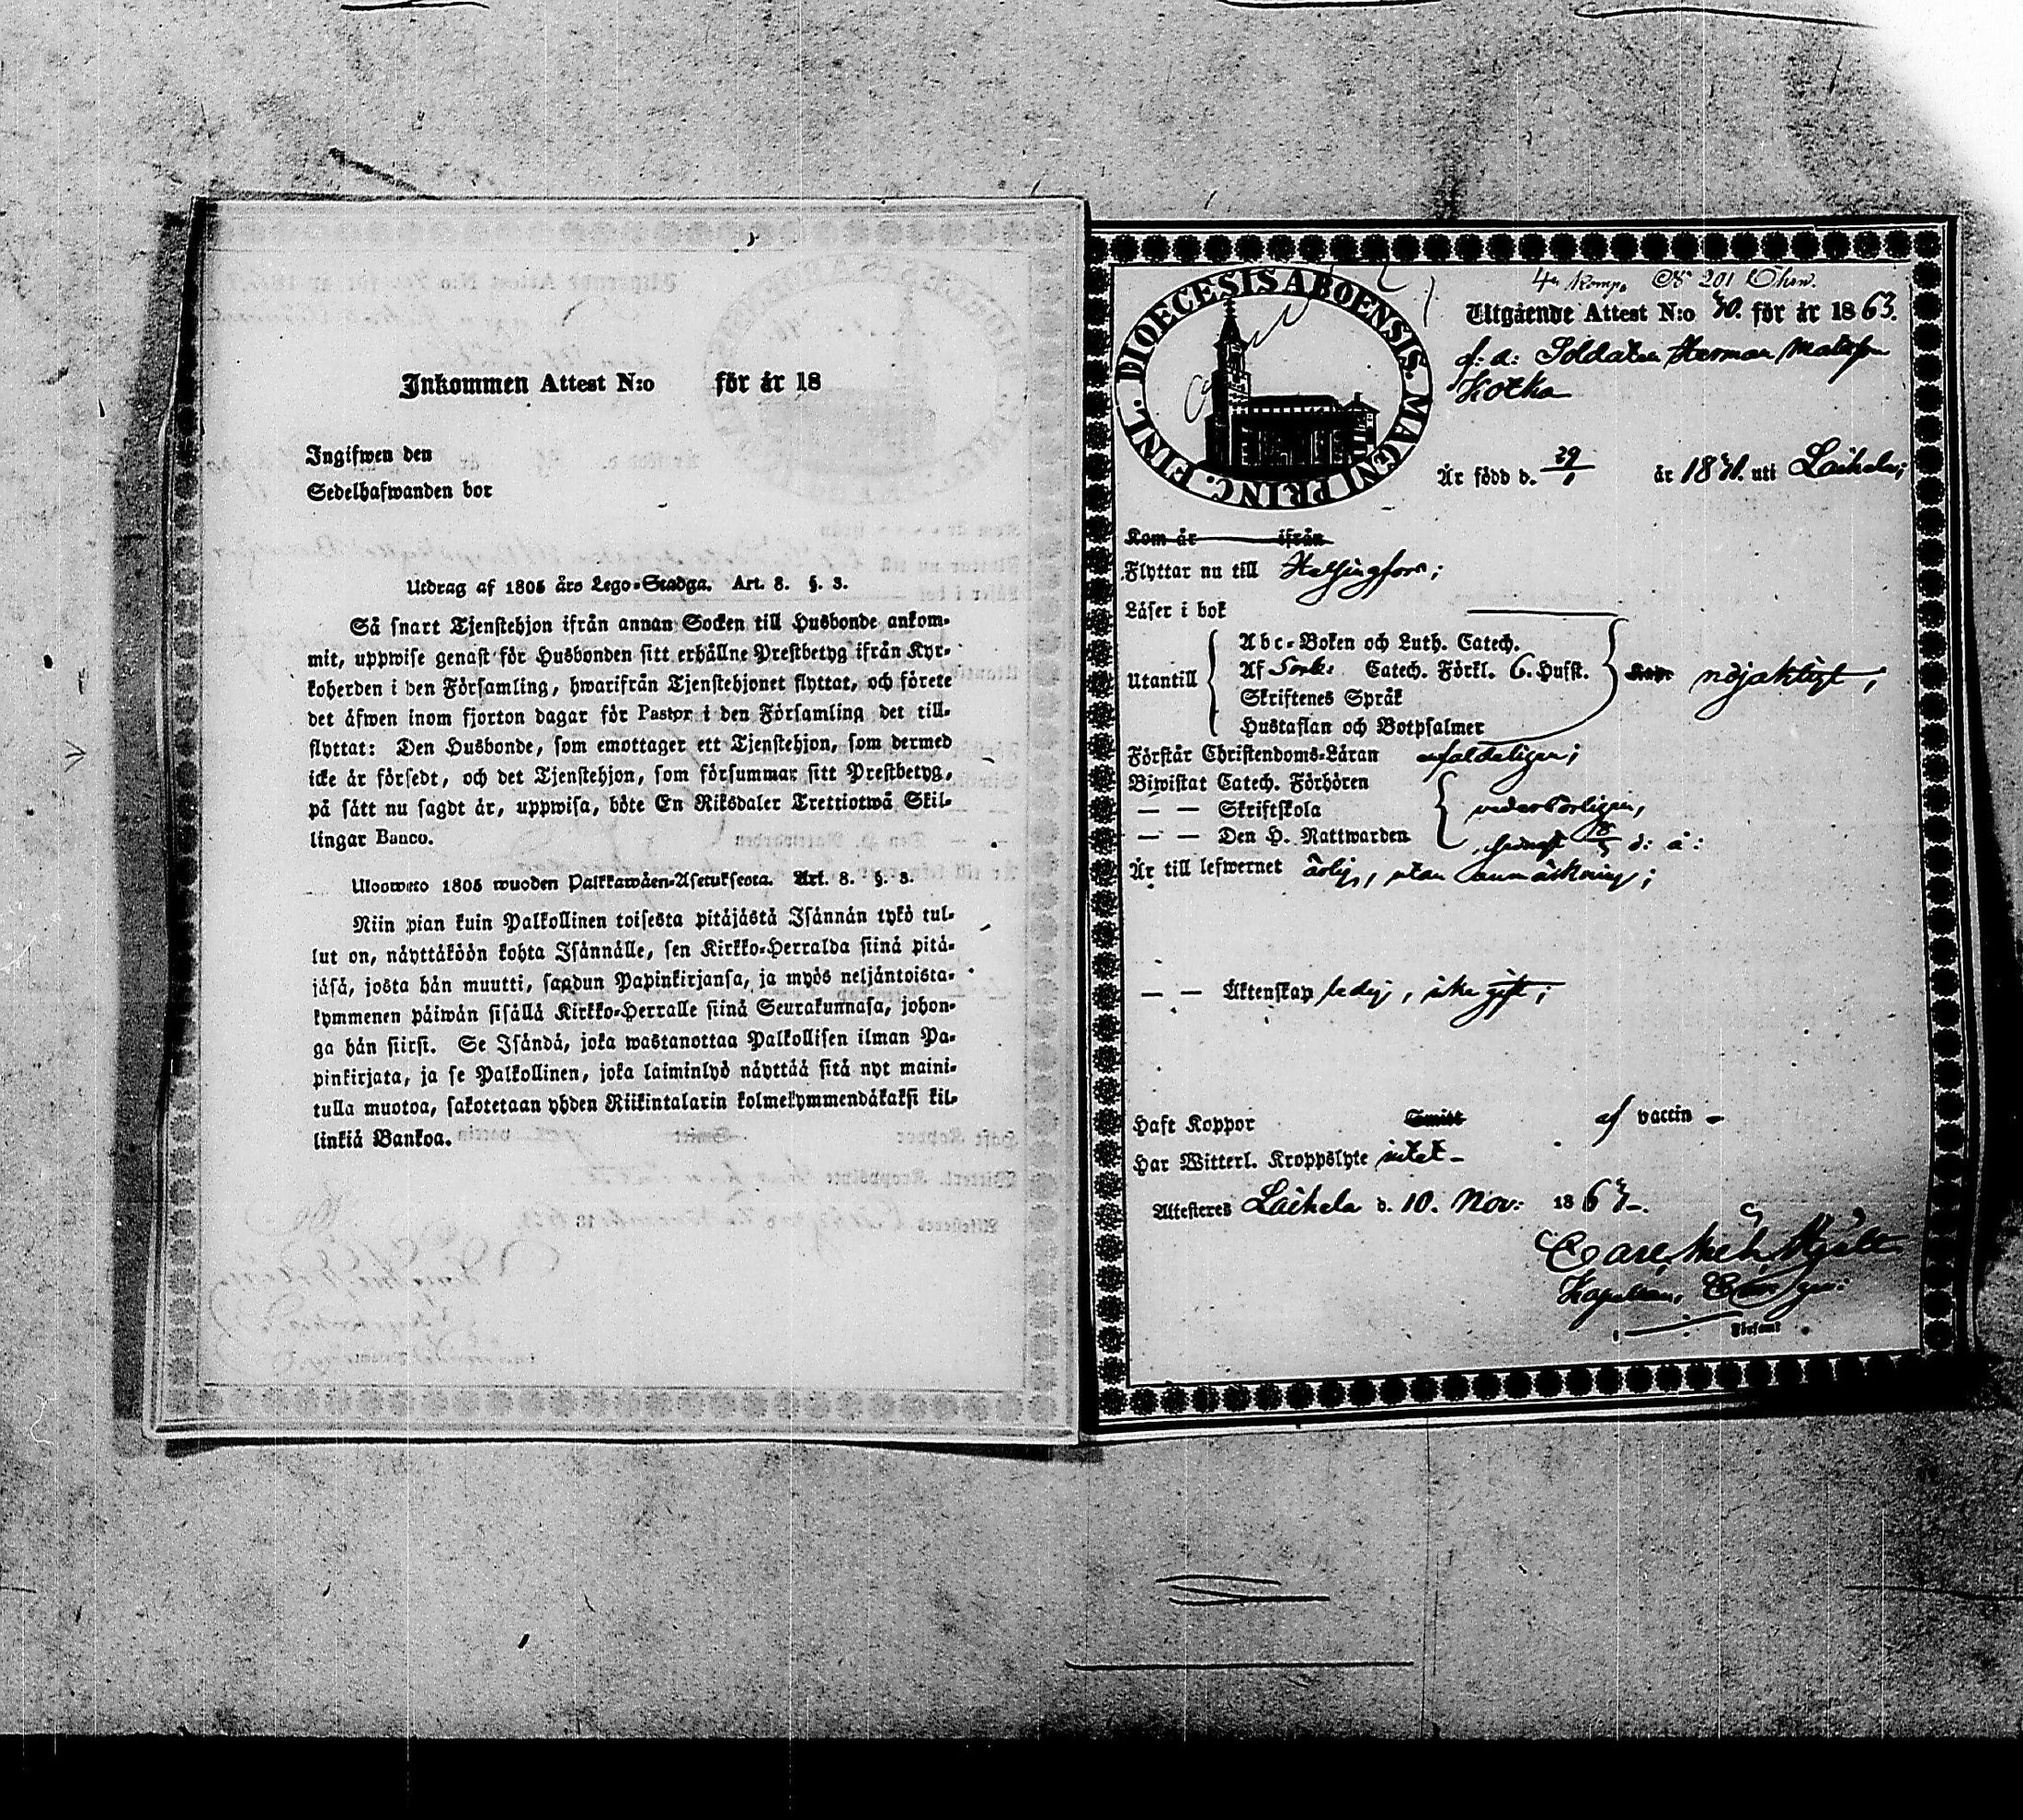 Inkommen Attest N:o för år 18
Ingifwen den
Sedelhafwanden bor
Utdrag af 1805 års Lego-Stadga. Art. 8. §. 3.
Så snart Tjenstehjon ifrån annan Socken till Husbonde ankom-
mit, uppwise genast för Husbonden sitt erhållne Prestbetyg ifrån Kyr-
koherden i den Församling, hwarifrån Tjenstehjonet flyttat, och förete
det äfwen inom fjorton dagar för Pastor i den Församling det till-
flyttat: Den Husbonde, som emottager ett Tjenstehjon, som dermed
icke är försedt, och det Tjenstehjon, som försummar sitt Prestbetyg,
på sätt nu sagdt är, uppwisa, böte En Riksdaler Trettiotwå Skil-
lingar Banco.
Uloswето 1805 wuoden Palkkawäen-Asetuksesta. Art. 8. §. 3.
Niin pian kuin Palkollinen toisesta pitäjästä Isännän tykö tul-
lut on, näyttäköön kohta Isännälle, sen Kirkko-Herralda siinä pitä-
jäsä, josta hän muutti, saadun Papinkirjansa, ja myös neljäntoista-
kymmenen päiwän sisällä Kirkko-Herralle siinä Seurakunnasa, johon-
ga hän siirsi. Se Isändä, joka wastanottaa Palkollisen ilman Pa-
pinkirjata, ja se Palkollinen, joka laiminlyö näyttää sitä nyt maini-
tulla muotoa, sakotetaan yhden Riikintalarin kolmekymmendäkaksi kil-
linkiä Bankoa.
DIOECESIS ABOENSIS. MAGNI PRINC. FINL.
4de Komp. No 201
Utgående Attest N:o för år 1863.
f: d: Soldaten Herman Matsson
Kotka
Är född d. 29/1 år uti Laihela;
Kom år ifrån
Flyttar nu till Helsingfors;
Läser i bok
Abc-Boken och Luth. Catech.
Utantill Af Catech. Förkl. 6. Hufst. nöjaktigt;
Skriftenes Språk
Hustaflan och Botpsalmer
Förstår Christendoms-Läran enfaldeligen;
Biwistat Catech. Förhören
— — Skriftskola vederbörligen,
— — Den H. Nattwarden senast d: å:
Är till lefwernet ärlig, utan anmärkning;
— — Äktenskap ledig, icke gift;
Haft Koppor Smitt af vaccin –
Har Witterl. Kroppslyte intet –
Attesteres Laihela d. 10. Nov: 1863.
Kapellan,
Församl